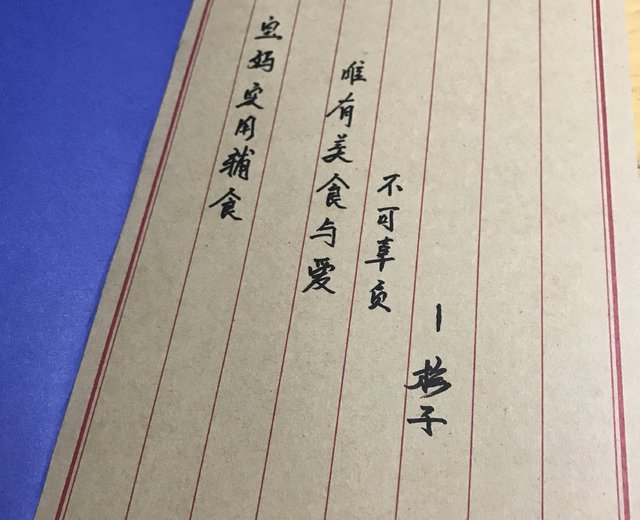 宝妈实用辅食
唯有美食与爱
不可辜负
— 子